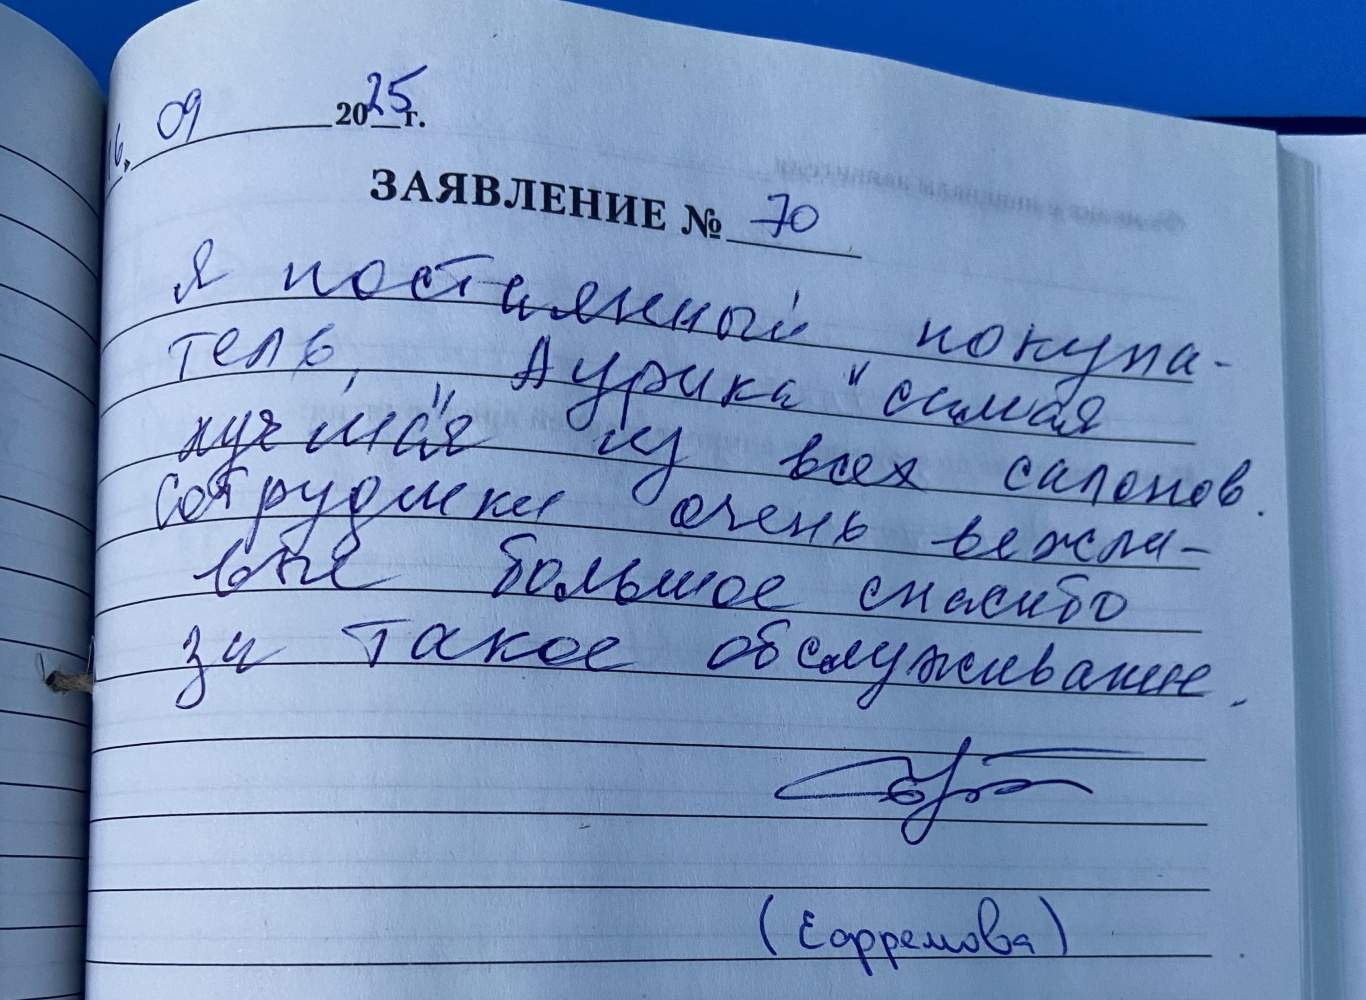 16 » 09 2025 г.
ЗАЯВЛЕНИЕ № 70
Я постаянный покупа-
тель, Аурика " самая
луч"шая из всех салонов.
Сотрудики очень вежли-
вые большое спасибо
за такое обслуживание.
(Ефремова)